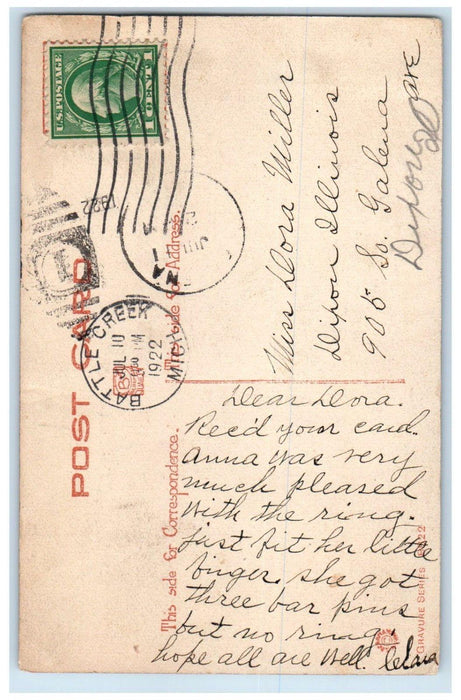 U.S. POSTAGE
1 CENT 1
1922
JUL
BATTLE CREEK
JUL 10
PM
1922
MICH.
POST CARD
This side for Address.
Miss Dora Miller
Dixon Illinois
905 So. Galena
Ave
Dixon
This side for Correspondence.
Dear Dora.
Rec'd your card.
Anna was very
much pleased
with the ring.
just fit her little
finger. she got
three bar pins
but no ring.
hope all are well. Clara
GRAVURE SERIES